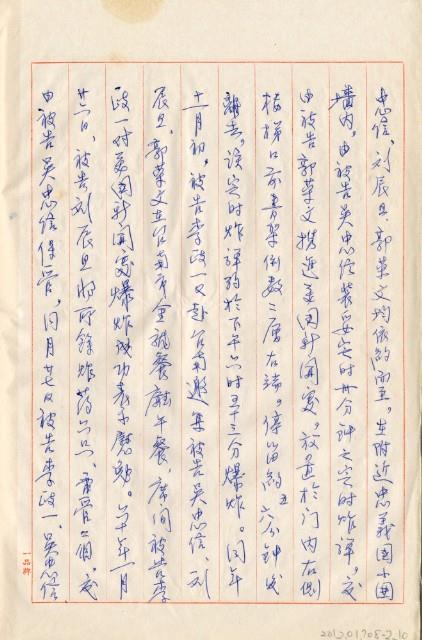 忠信、刘辰旦、郭荣文均依约而至。在附近忠義国小围
墙内。由被告吴忠信装妥定时卅分钟之定时炸弹，交
由被告郭荣文携进美国新闻处。放置於门内右侧
楼梯口前書架倒数二層右端。停留約五六分钟後
離去。该定时炸弹約於下午六时五十三分爆炸。同年
十一月初，被告李政一又赴台南邀集被告吴忠信、刘
辰旦、郭荣文在台南市金龍餐廳午餐，席间被告李
政一对美国新闻處爆炸成功表示慰勉。六十年一月
廿二日，被告刘辰旦将所餘炸药六只、雷管二個，交
由被告吴忠信保管，同月廿七日被告李政一、吴忠信
一品牌
2012.01.0708-2_10